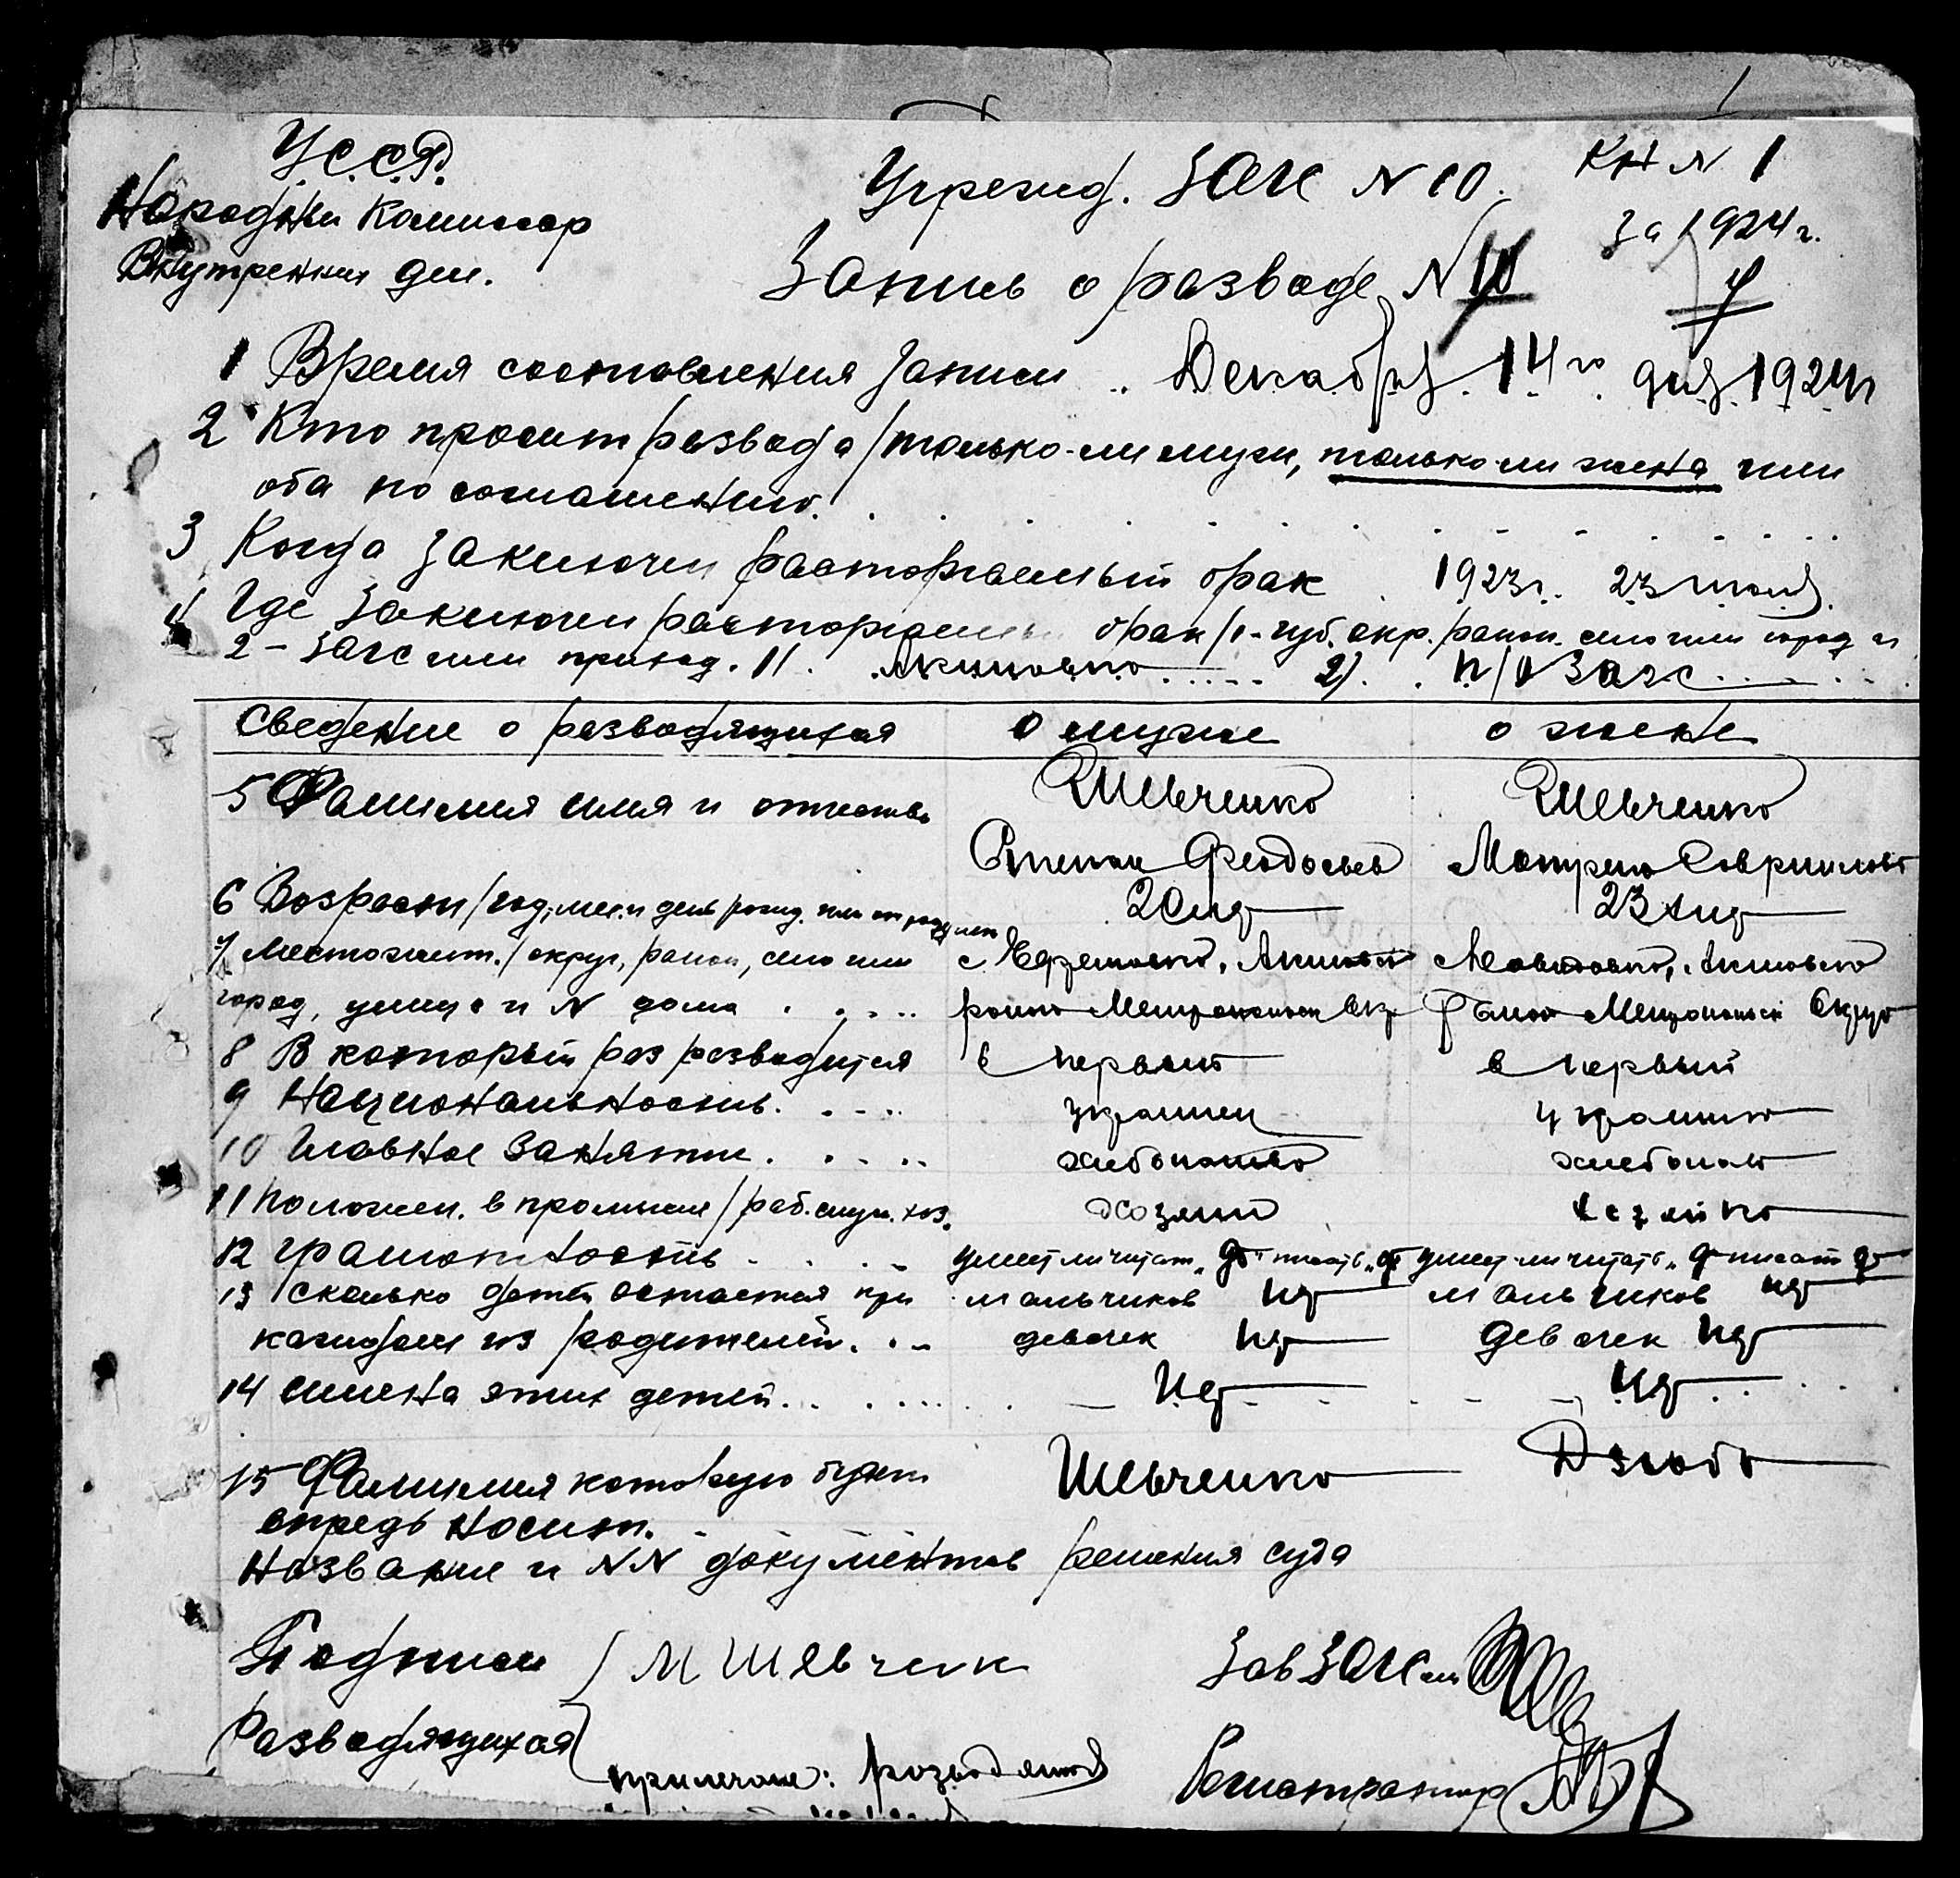 У.С.С.Р.
Учрежд. ЗАГС N 10.
КН N 1
Народный Комиссар
за 1924 г.
Внутренних дел.
Запись о разводе N
1 Время составления записи .. Декабря. 14го. дня. 1924г
2 Кто просит развода /только-ли муж, только-ли жена или
оба по соглашению.
3 Когда заключен расторгаемый брак 1923г. 23 июля.
4 Где заключен расторгаемый брак /1-губ. окр. район. село или город и
2-ЗАГС или приход. 1/. Акимовка 2). П/О Загс
Сведение о разводящихся о муже о жене
5 Фамилия имя и отчество Шевченко Шевченко
Степан Феодосьев Матрена Гавриилова
6 Возраст /год, мес. и день рожд. или от роду лет 20 лет 23 лет
7 Местожит. /округ, район, село или с Акимовск
город, улица и N дома район Мелитопольск Окр. район Мелитопольск Округа
8 В который раз разводится в первый в первый
9 Национальность. украинец украинка
10 Главное занятие. хлебопаш
11 Положен. в промысле /раб. служ. хоз. хозяин хозяйка
12 грамотность умеет ли читать „да" писать „да умеет-ли читать „да писать да
13 сколько детей остается при мальчиков нет мальчиков нет
каждом из родителей. девочек нет девочек нет
14 имена этих детей. нет нет
15 Фамилия которую будет Шевченко Дзюба
впредь носит.
название и NN документов решения суда
Подписи М Шевченк Зав ЗАГСом
Разводящихся
примечание: Регистратор